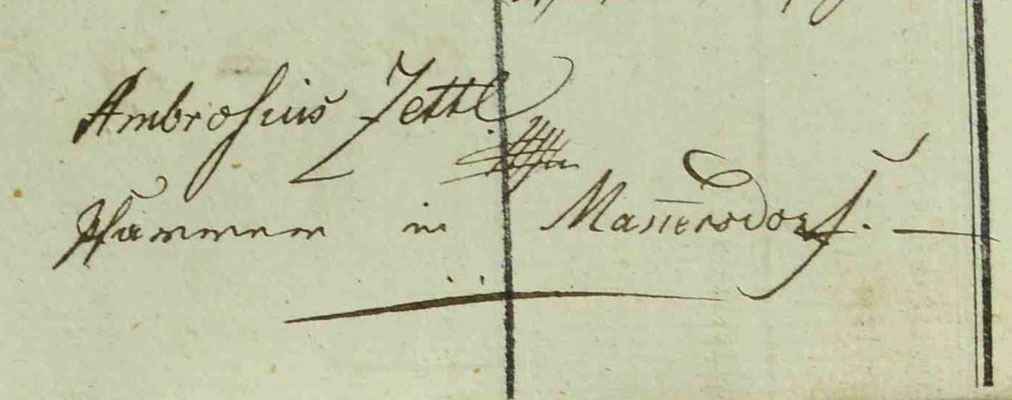 Ambrosius Zettl
Pfarrer in Man̄ersdorf.